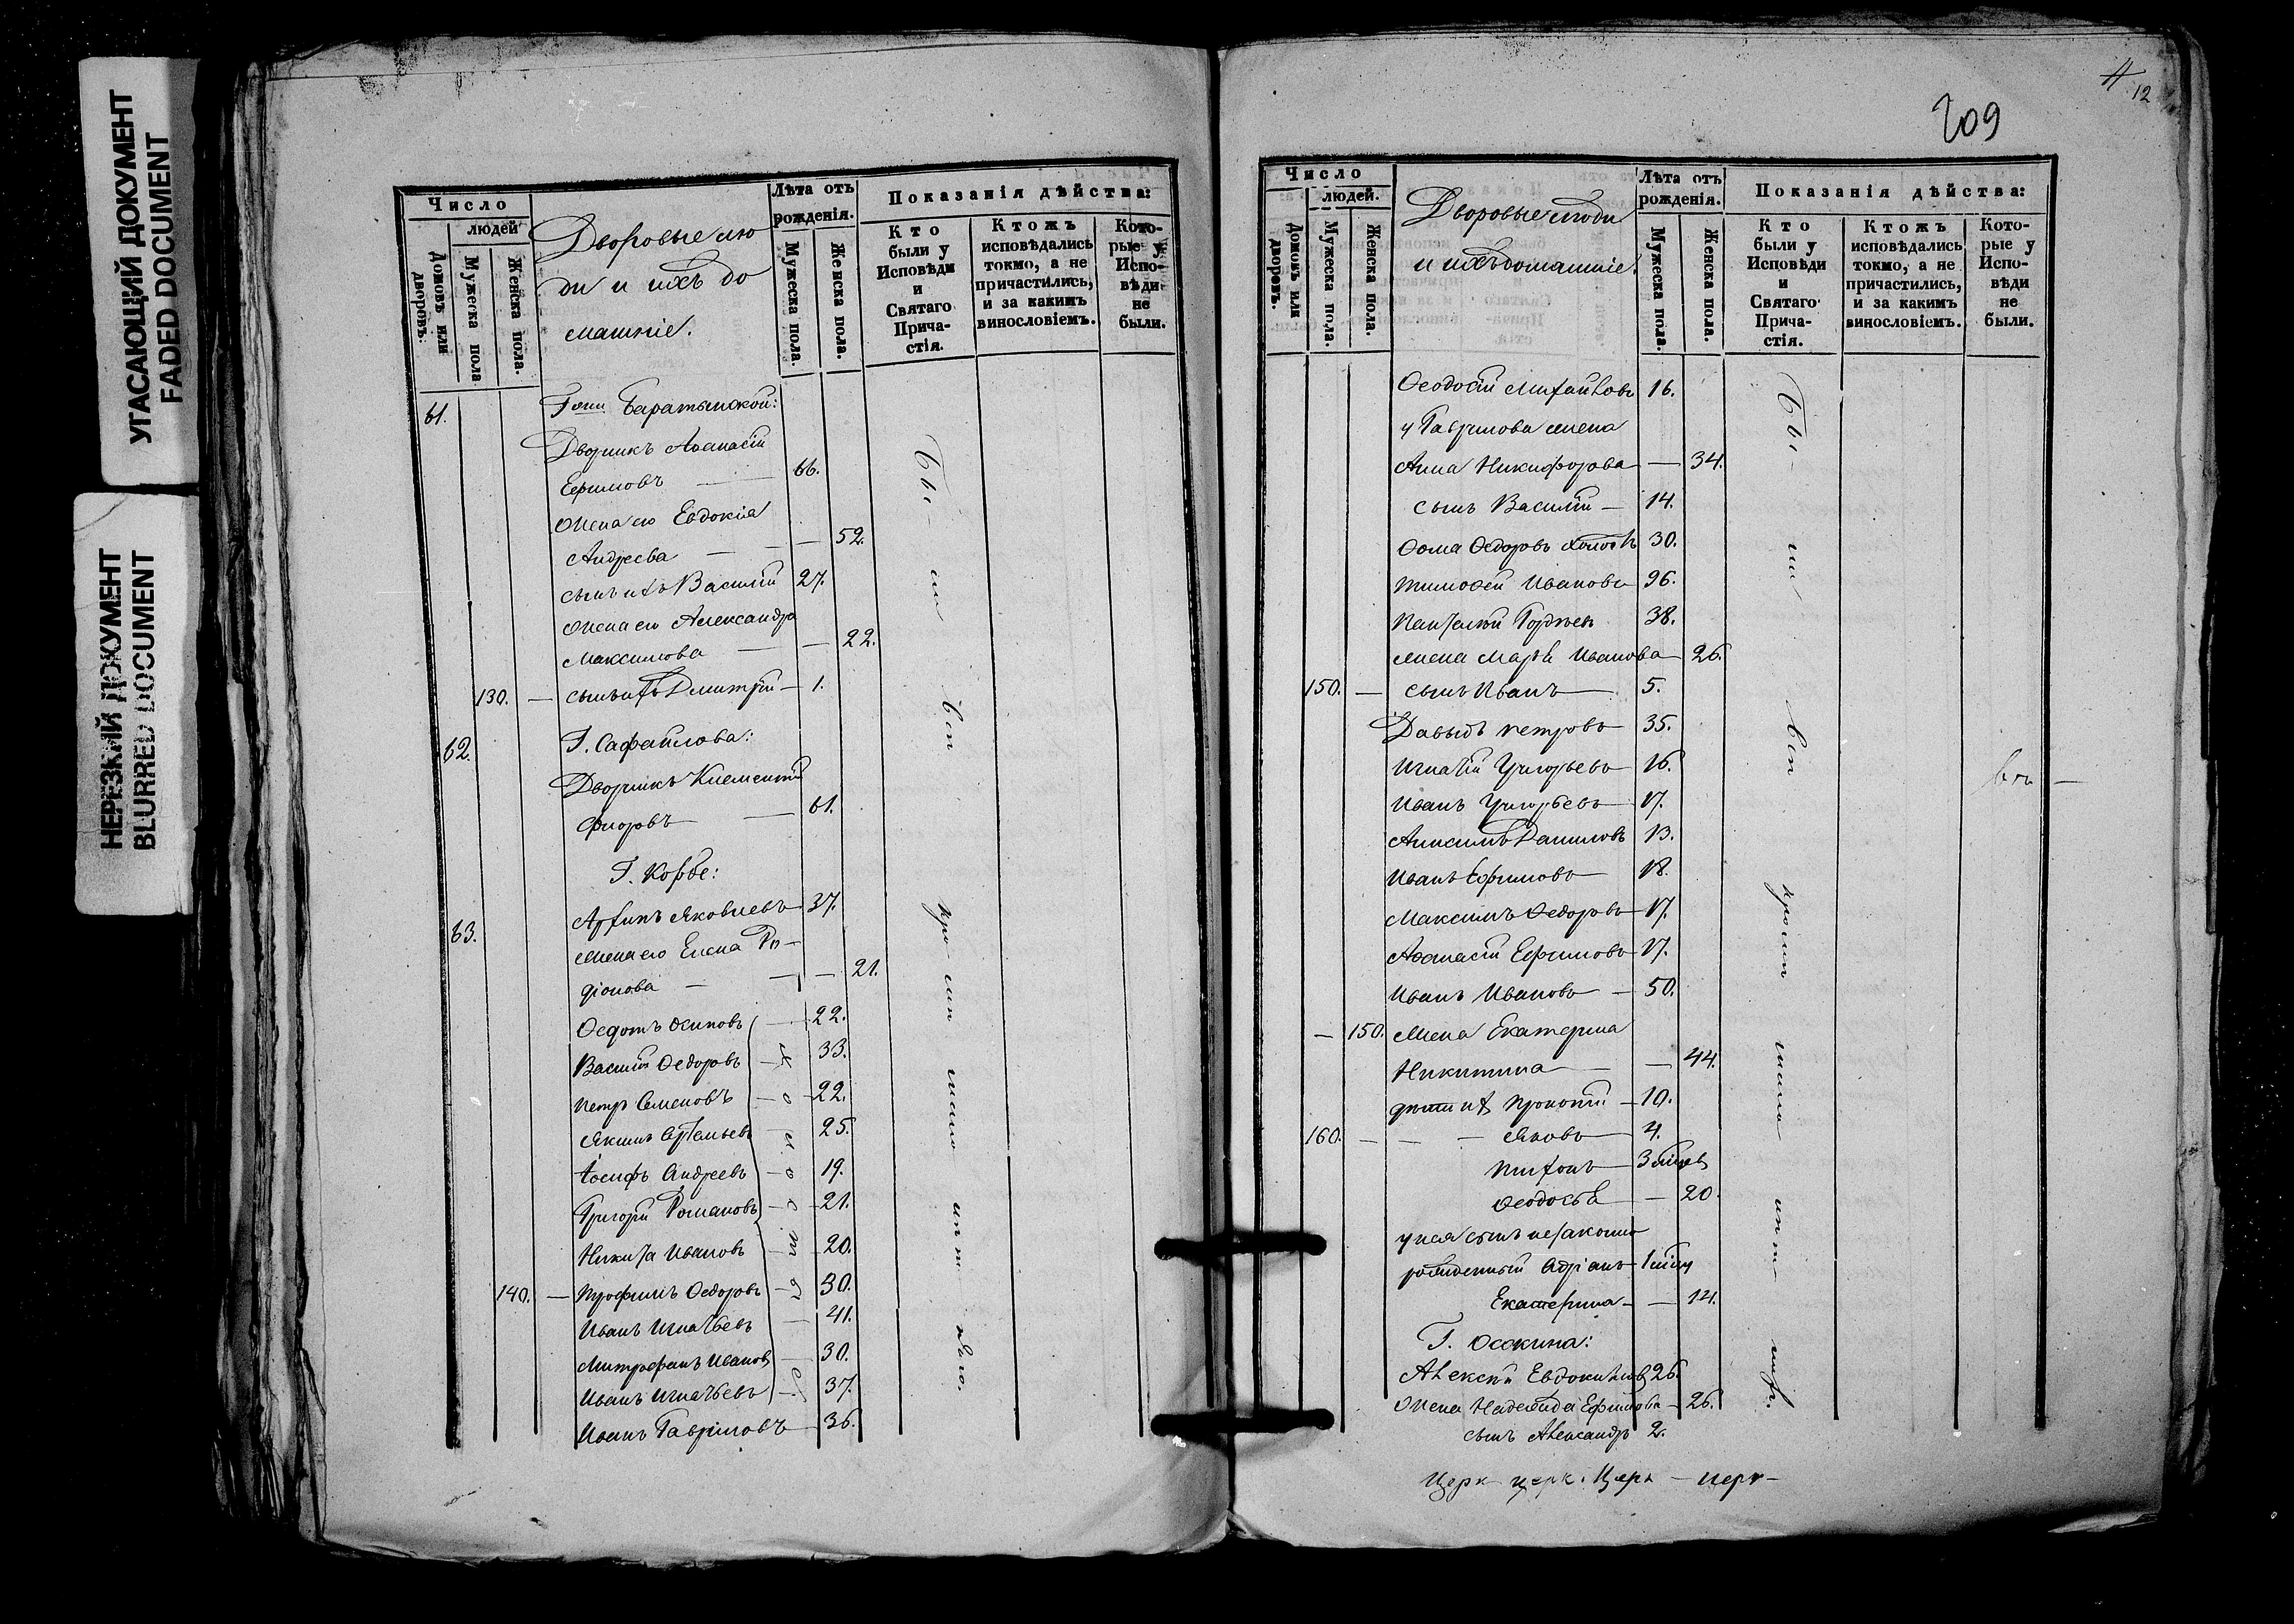 УГАСАЮЩИЙ ДОКУМЕНТ
FADED DOCUMENT
НЕРЕЗКИЙ ДОКУМЕНТ
BLURRED DOCUMENT
Число
людей
Домовъ или дворовъ.
Мужеска пола
Женска пола.
Дворовые лю
ди и ихъ до
машніе.
Лѣта отъ рожденія.
Мужеска пола.
Женска пола.
Показанія дѣйства:
Кто были у Исповѣди и Святаго Причастія.
Ктожъ исповѣдались токмо, а не причастились, и за какимъ винословіемъ.
Которые у Исповѣди не были.
61. Баратынской:
Дворникъ Аѳанасій
Ефимовъ 66.
Жена его Евдокіа
Андреева — 52.
сынъ ихъ Василій 27.
Жена его Александра
Максимова — 22.
130. — сынъ ихъ Дмитрій — 1.
62. Г. Сафайлова:
Дворникъ Клементій
Флоровъ — 61.
Г. Корбе:
63. Архипъ Яковлевъ 37.
жена его Елена Ро-
діонова — 21.
Ѳедотъ Осиповъ — 22.
Василій Ѳедоровъ 33.
Петръ Семеновъ 22.
Якимъ Артемьевъ 25.
Іосифъ Андреевъ 19.
Григорій Романовъ 21.
Никита Ивановъ 20.
140. — Трофимъ Ѳедоровъ 30.
Иванъ Игнатьевъ 41.
Митрофанъ Ивановъ 30.
Иванъ Игнатьевъ 37.
Иванъ Гавриловъ 36.
Бы-
ли
всп
209
12
Число
людей.
Домовъ или дворовъ.
Мужеска пола.
Женска пола.
Дворовые люди
и ихъ домашніе.
Лѣта отъ рожденія.
Мужеска пола.
Женска пола.
Показанія дѣйства:
Кто были у Исповѣди и Святаго Причастія.
Ктожъ исповѣдались токмо, а не причастились, и за какимъ винословіемъ.
Которые у Исповѣди не были.
Ѳеодосій Михайловъ 16.
у Гаврилова жена
Анна Никифорова — 34.
сынъ Василій — 14.
Ѳома Ѳедоровъ холостъ 30.
Тимоѳей Ивановъ 96.
Пантелѣй Гордѣевъ 38.
жена Марѳа Иванова 26.
150. — сынъ Иванъ 5.
Давыдъ Петровъ 35.
Игнатій Григорьевъ 16.
Иванъ Григорьевъ 17.
Анисимъ Даниловъ 13.
Иванъ Ефимовъ 18.
Максимъ Ѳедоровъ 17.
Аѳанасій Ефимовъ 17.
Иванъ Ивановъ — 50.
— 150. жена Екатерина
Никитина — 44.
дѣти ихъ Прокопій — 10.
160. — Яковъ 4.
Тихонъ 3
Ѳеодосія — 20.
у нея сынъ незаконно
рожденный Адріанъ 1
Екатерина — 14.
Г. Осокина:
Алексѣй Евдокимовъ 26.
Жена Надежда Ефимова — 26.
сынъ Александръ 2.
Бы-
ли
всп
Церк церк. Церк — церк —